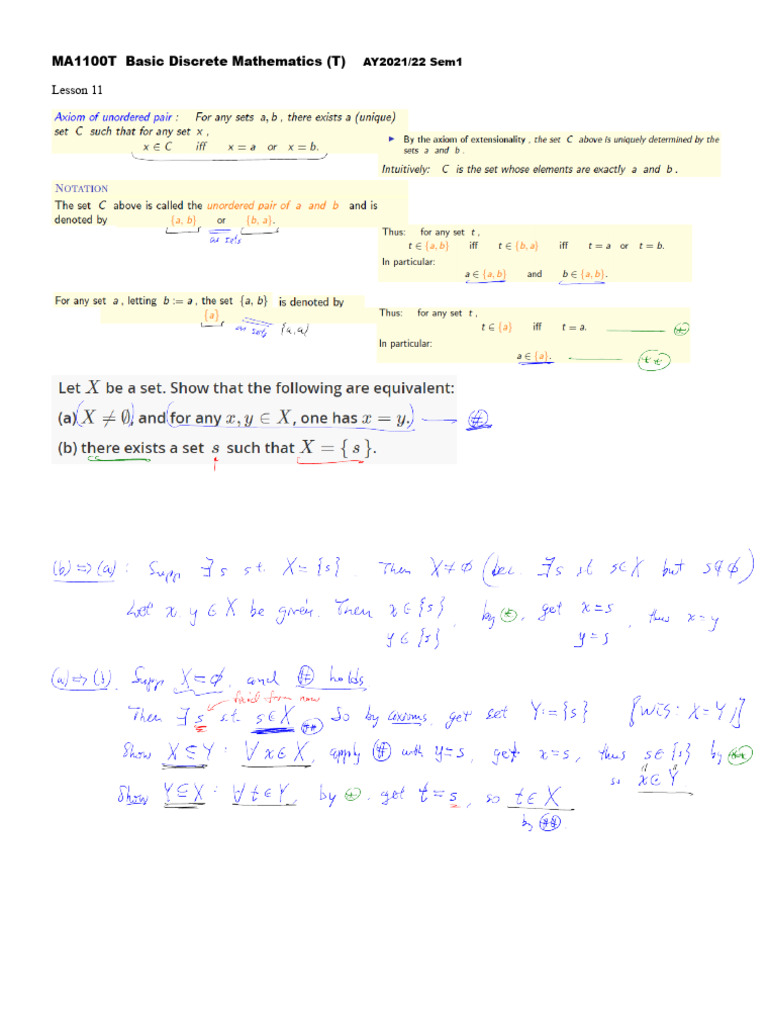 MA1100T Basic Discrete Mathematics (T) AY2021/22 Sem1
Lesson 11
Axiom of unordered pair : For any sets a, b , there exists a (unique)
set C such that for any set x ,
x ∈ C iff x = a or x = b.
▶ By the axiom of extensionality , the set C above is uniquely determined by the
sets a and b .
Intuitively: C is the set whose elements are exactly a and b .
NOTATION
The set C above is called the unordered pair of a and b and is
denoted by {a, b} or {b, a}.
as sets
Thus: for any set t ,
t ∈ {a, b} iff t ∈ {b, a} iff t = a or t = b.
In particular:
a ∈ {a, b} and b ∈ {a, b}.
For any set a , letting b := a , the set {a, b} is denoted by
{a} as sets {a,a}
Thus: for any set t ,
t ∈ {a} iff t = a. (*)
In particular:
a ∈ {a}. (**)
Let X be a set. Show that the following are equivalent:
(a) X ≠ ∅, and for any x, y ∈ X, one has x = y. (#)
(b) there exists a set s such that X = { s }.
(b) ⇒ (a) : Supp ∃ s st. X = {s}. Then X ≠ ∅ (bec. ∃ s st s∈X but s∉∅)
Let x, y ∈ X be given. Then x ∈ {s}, by (*), get x = s, thus x = y
y ∈ {s} y = s
(a) ⇒ (b). Supp X = ∅, and (#) holds
fixed from now
Then ∃ s st. s∈X (##) So by axioms, get set Y := {s} [WTS: X = Y]
Show X ⊆ Y : ∀ x∈X, apply (#) with y=s, get x=s, thus s∈{s} by (**)
so x ∈ Y
Show Y ⊆ X : ∀ t ∈ Y, by (*), get t = s, so t ∈ X
by (##)